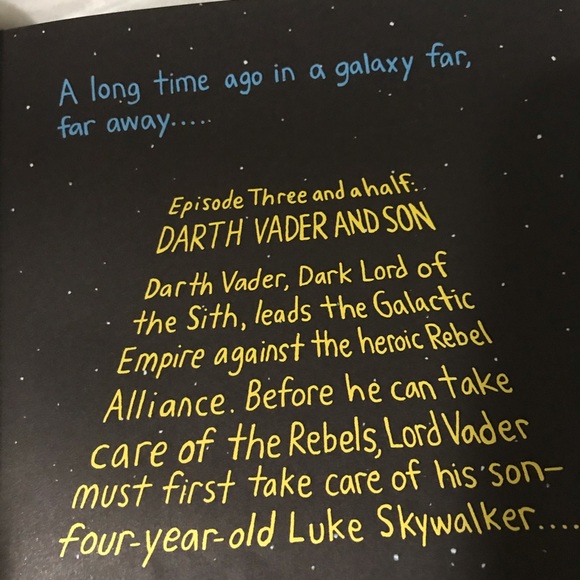 A long time ago in a galaxy far,
far away.....
Episode Three and a half:
DARTH VADER AND SON
Darth Vader, Dark Lord of
the Sith, leads the Galactic
Empire against the heroic Rebel
Alliance. Before he can take
care of the Rebels, Lord Vader
must first take care of his son—
four-year-old Luke Skywalker....